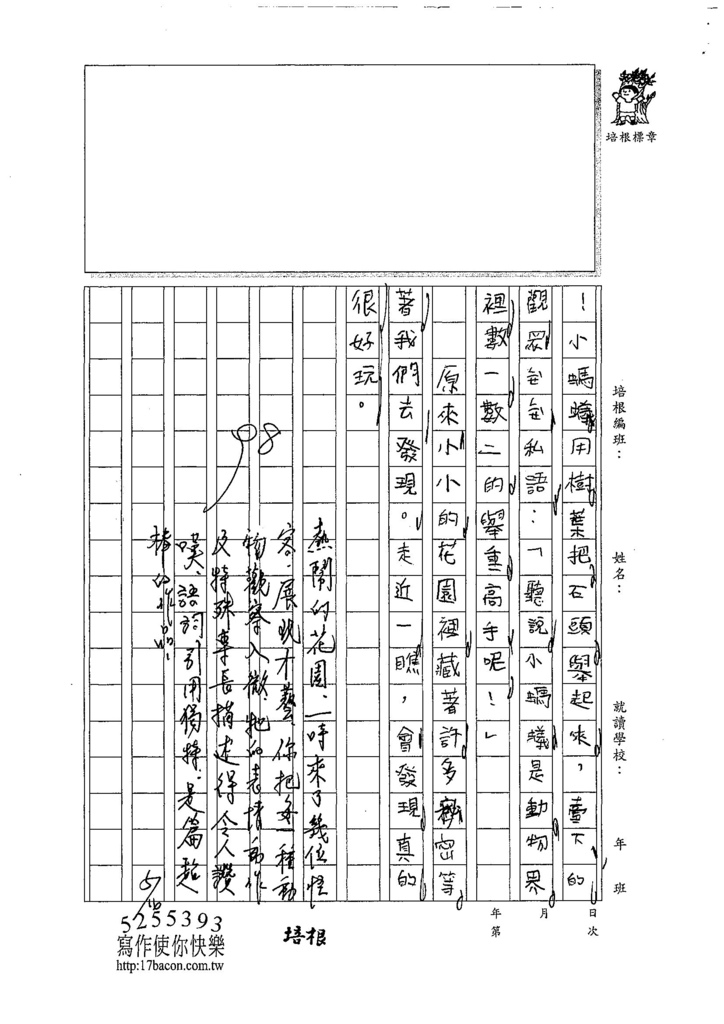 培根標章
培根編班：
姓名：
就讀學校：
年 班
！小螞蟻用樹葉把石頭舉起來，臺下的
觀眾竊竊私語：「聽說小螞蟻是動物界
裡數一數二的舉重高手呢！」
原來小小的花園裡藏著許多祕密等
著我們去發現。走近一瞧，會發現真的
很好玩。
98
熱鬧的花園，一時來了幾位怪
客，展現才藝，你把每一種動
物觀察入微，牠的表情、動作
及特殊專長描述得令人讚
嘆、語詞引用獨特，是篇超
棒的作品。
5/10
年 月 日
第 次
培根
5255393
寫作使你快樂
http:17bacon.com.tw